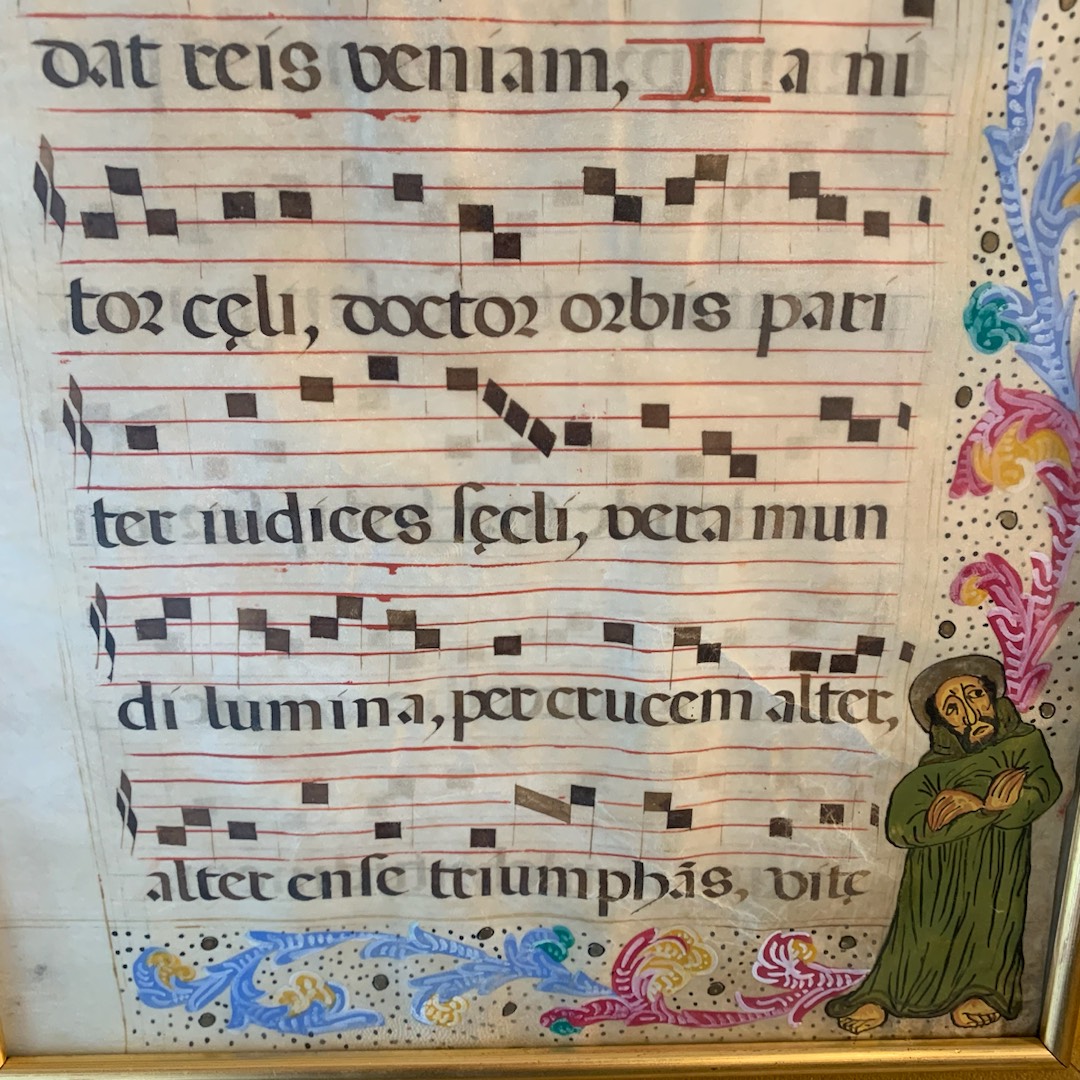 dat reis veniam, Ia ni
tor cęli, doctor orbis pari
ter iudices sęcli, vera mun
di lumina, per crucem alter,
alter ense triumphãs, vitę